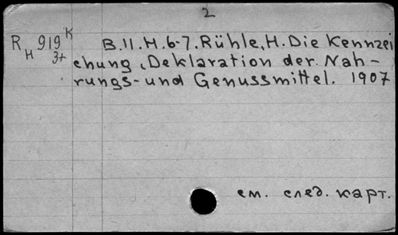 2
R 919 K B.II.H.6-7. Rühle, H. Die Kennzei
H 3+ chung, Deklaration der Nah-
rungs- und Genussmittel. 1907
см. след. карт.